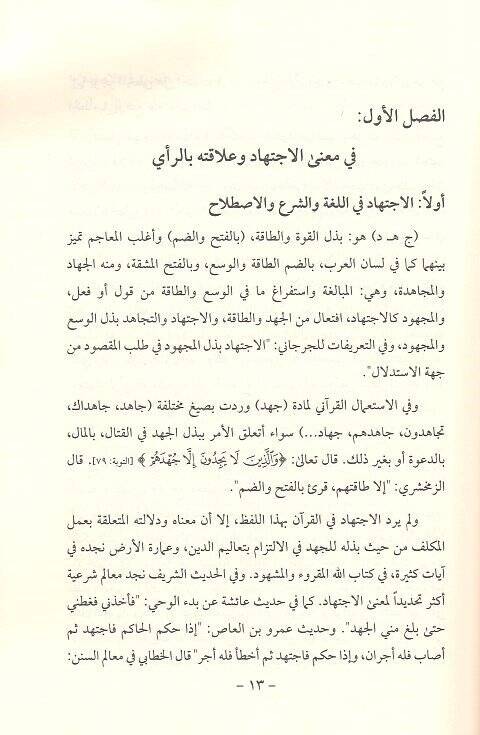 الفصل الأول:
في معنىٰ الاجتهاد وعلاقته بالرأي
أولاً: الاجتهاد في اللغة والشرع والاصطلاح
(ج هـ د) هو: بذل القوة والطاقة، (بالفتح والضم) وأغلب المعاجم تميز
بينهما كما في لسان العرب، بالضم الطاقة والوسع، وبالفتح المشقة، ومنه الجهاد
والمجاهدة، وهي: المبالغة واستفراغ ما في الوسع والطاقة من قول أو فعل،
والمجهود كالاجتهاد، افتعال من الجهد والطاقة، والاجتهاد والتجاهد بذل الوسع
والمجهود، وفي التعريفات للجرجاني: "الاجتهاد بذل المجهود في طلب المقصود من
جهة الاستدلال".
وفي الاستعمال القرآني لمادة (جهد) وردت بصيغ مختلفة (جاهد، جاهداك،
تجاهدون، جاهدهم، جهاد...) سواء أتعلق الأمر ببذل الجهد في القتال، بالمال،
بالدعوة أو بغير ذلك. قال تعالىٰ: ﴿وَٱلَّذِينَ لَا يَجِدُونَ إِلَّا جُهْدَهُمْ﴾ [التوبة: ٧٩]. قال
الزمخشري: "إلا طاقتهم، قرئ بالفتح والضم".
ولم يرد الاجتهاد في القرآن بهذا اللفظ، إلا أن معناه ودلالته المتعلقة بعمل
المكلف من حيث بذله للجهد في الالتزام بتعاليم الدين، وعمارة الأرض نجده في
آيات كثيرة، في كتاب الله المقروء والمشهود. وفي الحديث الشريف نجد معالم شرعية
أكثر تحديداً لمعنىٰ الاجتهاد. كما في حديث عائشة عن بدء الوحي: "فأخذني فغطني
حتىٰ بلغ مني الجهد". وحديث عمرو بن العاص: "إذا حكم الحاكم فاجتهد ثم
أصاب فله أجران، وإذا حكم فاجتهد ثم أخطأ فله أجر" قال الخطابي في معالم السنن:
- ١٣ -